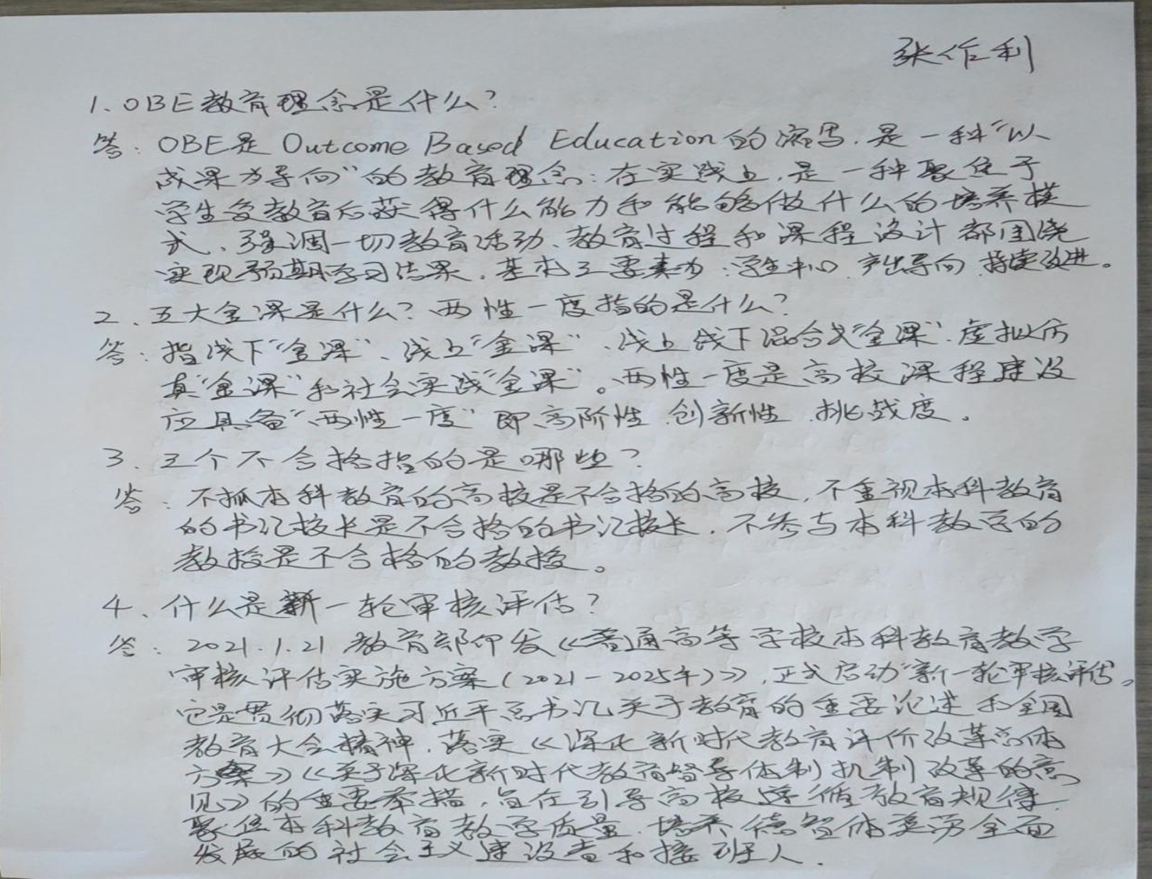 张作利
1. OBE教育理念是什么?
答: OBE是 Outcome Based Education 的缩写, 是一种“以
成果为导向”的教育理念; 在实践上, 是一种聚焦于
学生受教育后获得什么能力和能够做什么的培养模
式、强调一切教育活动、教育过程和课程设计都围绕
实现预期学习结果. 基本三要素为: 学生中心 产出导向 持续改进。
2、五大金课是什么? 两性一度指的是什么?
答: 指线下“金课”、线上“金课”、线上线下混合式“金课”、虚拟仿
真“金课”和社会实践“金课”。两性一度是高校课程建设
应具备“两性一度”即高阶性 创新性 挑战度。
3、三个不合格指的是哪些?
答: 不抓本科教育的高校是不合格的高校, 不重视本科教育
的书记校长是不合格的书记校长, 不参与本科教学的
教授是不合格的教授。
4、什么是新一轮审核评估?
答: 2021.1.21 教育部印发《普通高等学校本科教育教学
审核评估实施方案(2021-2025年)》, 正式启动“新一轮审核评估。
它是贯彻落实习近平总书记关于教育的重要论述和全国
教育大会精神, 落实《深化新时代教育评价改革总体
方案》《关于深化新时代教育督导体制机制改革的意
见》的重要举措, 旨在引导高校遵循教育规律,
聚焦本科教育教学质量, 培养德智体美劳全面
发展的社会主义建设者和接班人.